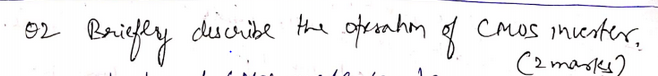 02 Briefly describe the operation of CMOS inverter.
(2 marks)